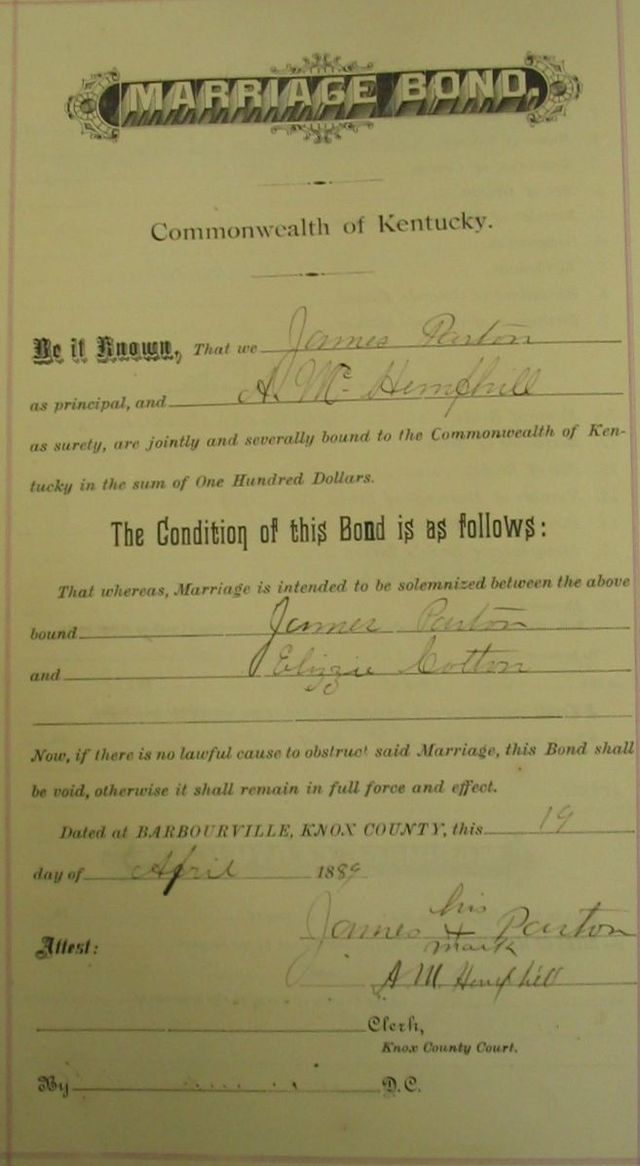 MARRIAGE BOND,
Commonwealth of Kentucky.
Be it Known, That we James Parton
as principal, and A. Mc Hemphill
as surety, are jointly and severally bound to the Commonwealth of Ken-
tucky in the sum of One Hundred Dollars.
The Condition of this Bond is as follows:
That whereas, Marriage is intended to be solemnized between the above
bound James Parton
and Elizzie Cotton
Now, if there is no lawful cause to obstruct said Marriage, this Bond shall
be void, otherwise it shall remain in full force and effect.
Dated at BARBOURVILLE, KNOX COUNTY, this 19
day of April 1889
his
James + Parton
mark
Attest:
A M Hemphill
Clerk,
Knox County Court.
By D.C.